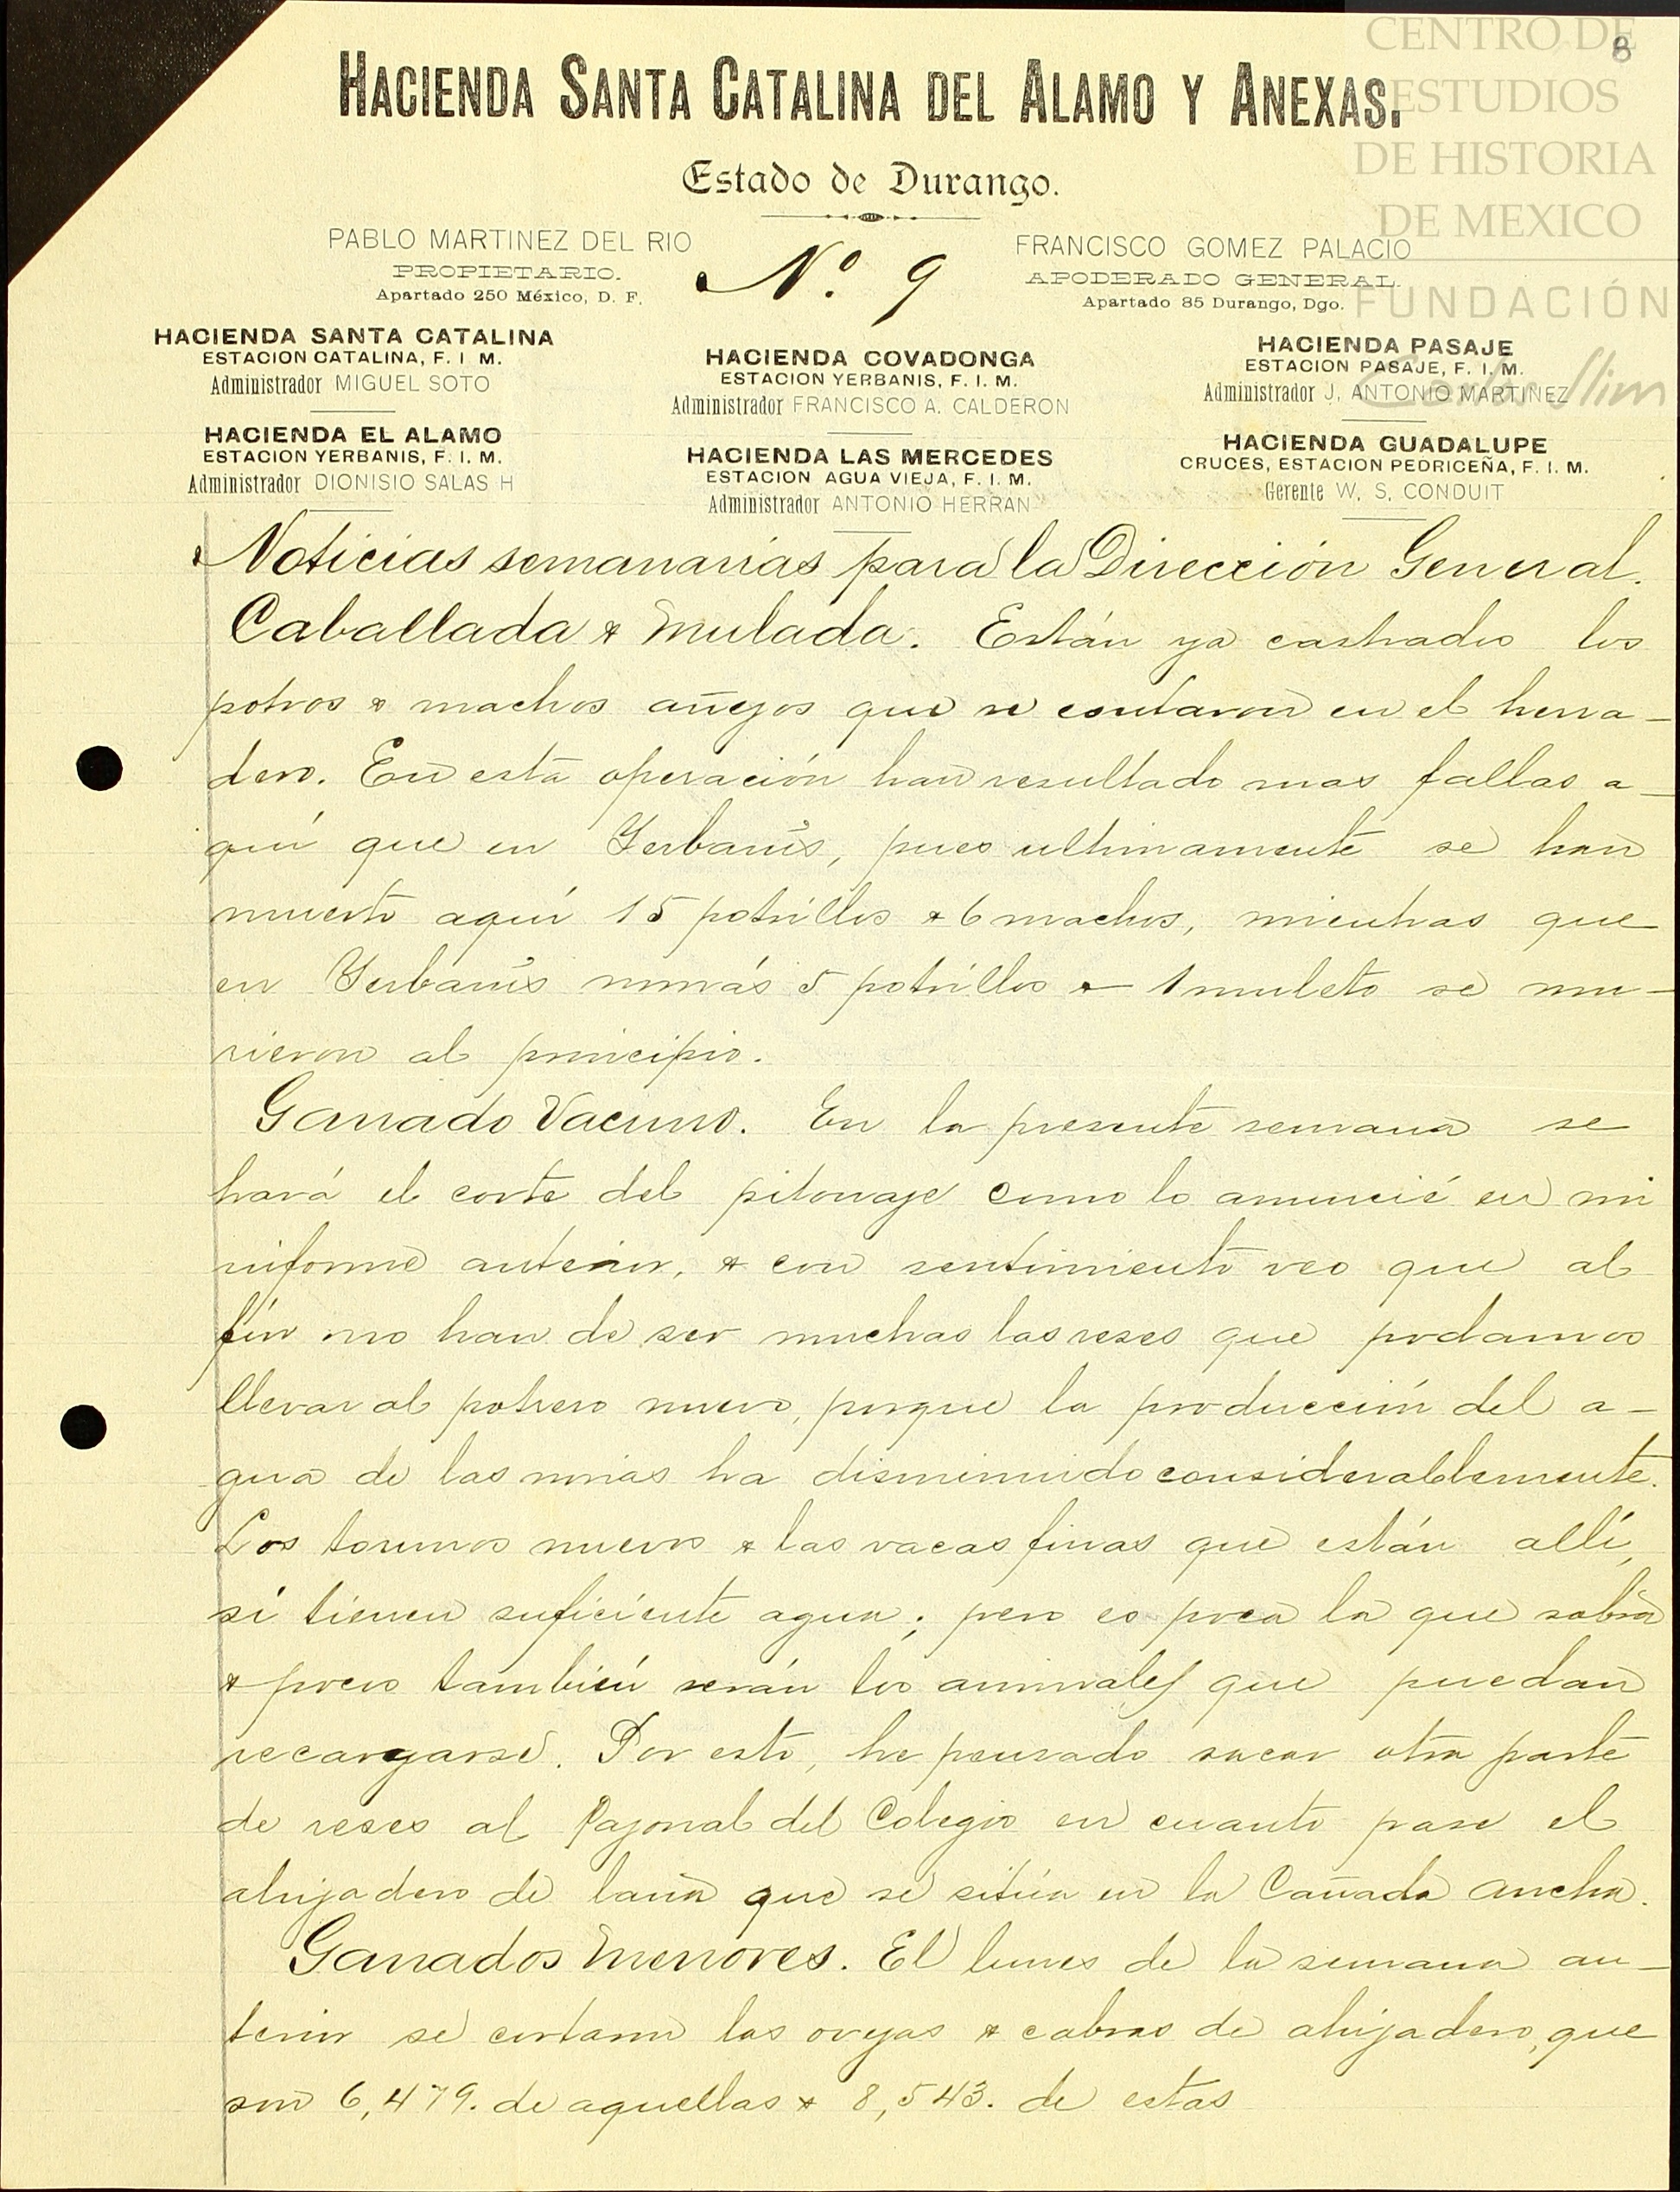 CENTRO DE
ESTUDIOS
DE HISTORIA
DE MEXICO
FUNDACIÓN
Carlos Slim
8
HACIENDA SANTA CATALINA DEL ALAMO Y ANEXAS.
Estado de Durango.
PABLO MARTINEZ DEL RIO
PROPIETARIO.
Apartado 250 México, D. F.
Nº. 9
FRANCISCO GOMEZ PALACIO
APODERADO GENERAL.
Apartado 85 Durango, Dgo.
HACIENDA SANTA CATALINA
ESTACION CATALINA, F. I. M.
Administrador MIGUEL SOTO
HACIENDA EL ALAMO
ESTACION YERBANIS, F. I. M.
Administrador DIONISIO SALAS H
HACIENDA COVADONGA
ESTACION YERBANIS, F. I. M.
Administrador FRANCISCO A. CALDERON
HACIENDA LAS MERCEDES
ESTACION AGUA VIEJA, F. I. M.
Administrador ANTONIO HERRAN
HACIENDA PASAJE
ESTACION PASAJE, F. I. M.
Administrador J. ANTONIO MARTINEZ
HACIENDA GUADALUPE
CRUCES, ESTACION PEDRICEÑA, F. I. M.
Gerente W. S. CONDUIT
Noticias semanarias para la Dirección General.
Caballada & Mulada. Están ya castrados los
potros & machos añejos que se contaron en el herra-
dero. En esta operación han resultado mas fallas a-
quí que en Yerbanís, pues ultimamente se han
muerto aquí 15 potrillos & 6 machos, mientras que
en Yerbanís nomás 5 potrillos & 1 muleto se mu-
rieron al principio.
Ganado Vacuno. En la presente semana se
hará el corte del pitonaje como lo anuncié en mi
informe anterior, & con sentimiento veo que al
fín no han de ser muchas las reses que podamos
llevar al potrero nuevo, porque la producción del a-
gua de las norias ha disminuido considerablemente.
Los torunos nuevos & las vacas finas que están allí,
sí tienen suficiente agua; pero es poca la que sobra
& pocos también serán los animales que puedan
recargarse. Por esto, he pensado sacar otra parte
de reses al Pajonal del Colegio en cuanto pase el
ahijadero de lana que se sitúa en la Cañada Ancha.
Ganados Menores. El lunes de la semana an-
terior se cortaron las ovejas & cabras de ahijadero, que
son 6,479. de aquellas & 8,543. de estas